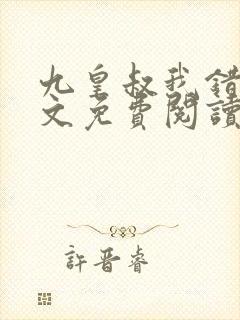 九皇叔我錯
文免費閱讀
許晋睿